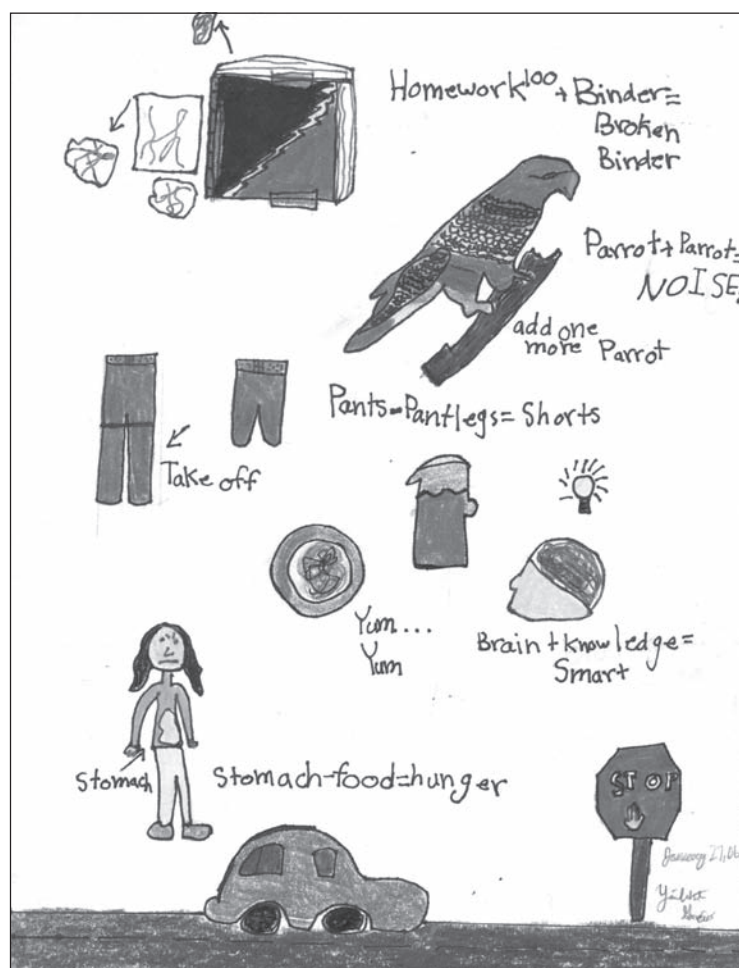 Homework¹⁰⁰ + Binder =
Broken
Binder
Parrot + Parrot =
NOISE
add one
more Parrot
Pants - Pantlegs = Shorts
Take off
Yum...
Yum
Brain + knowledge =
Smart
Stomach
Stomach - food = hunger
STOP
January 27, 06